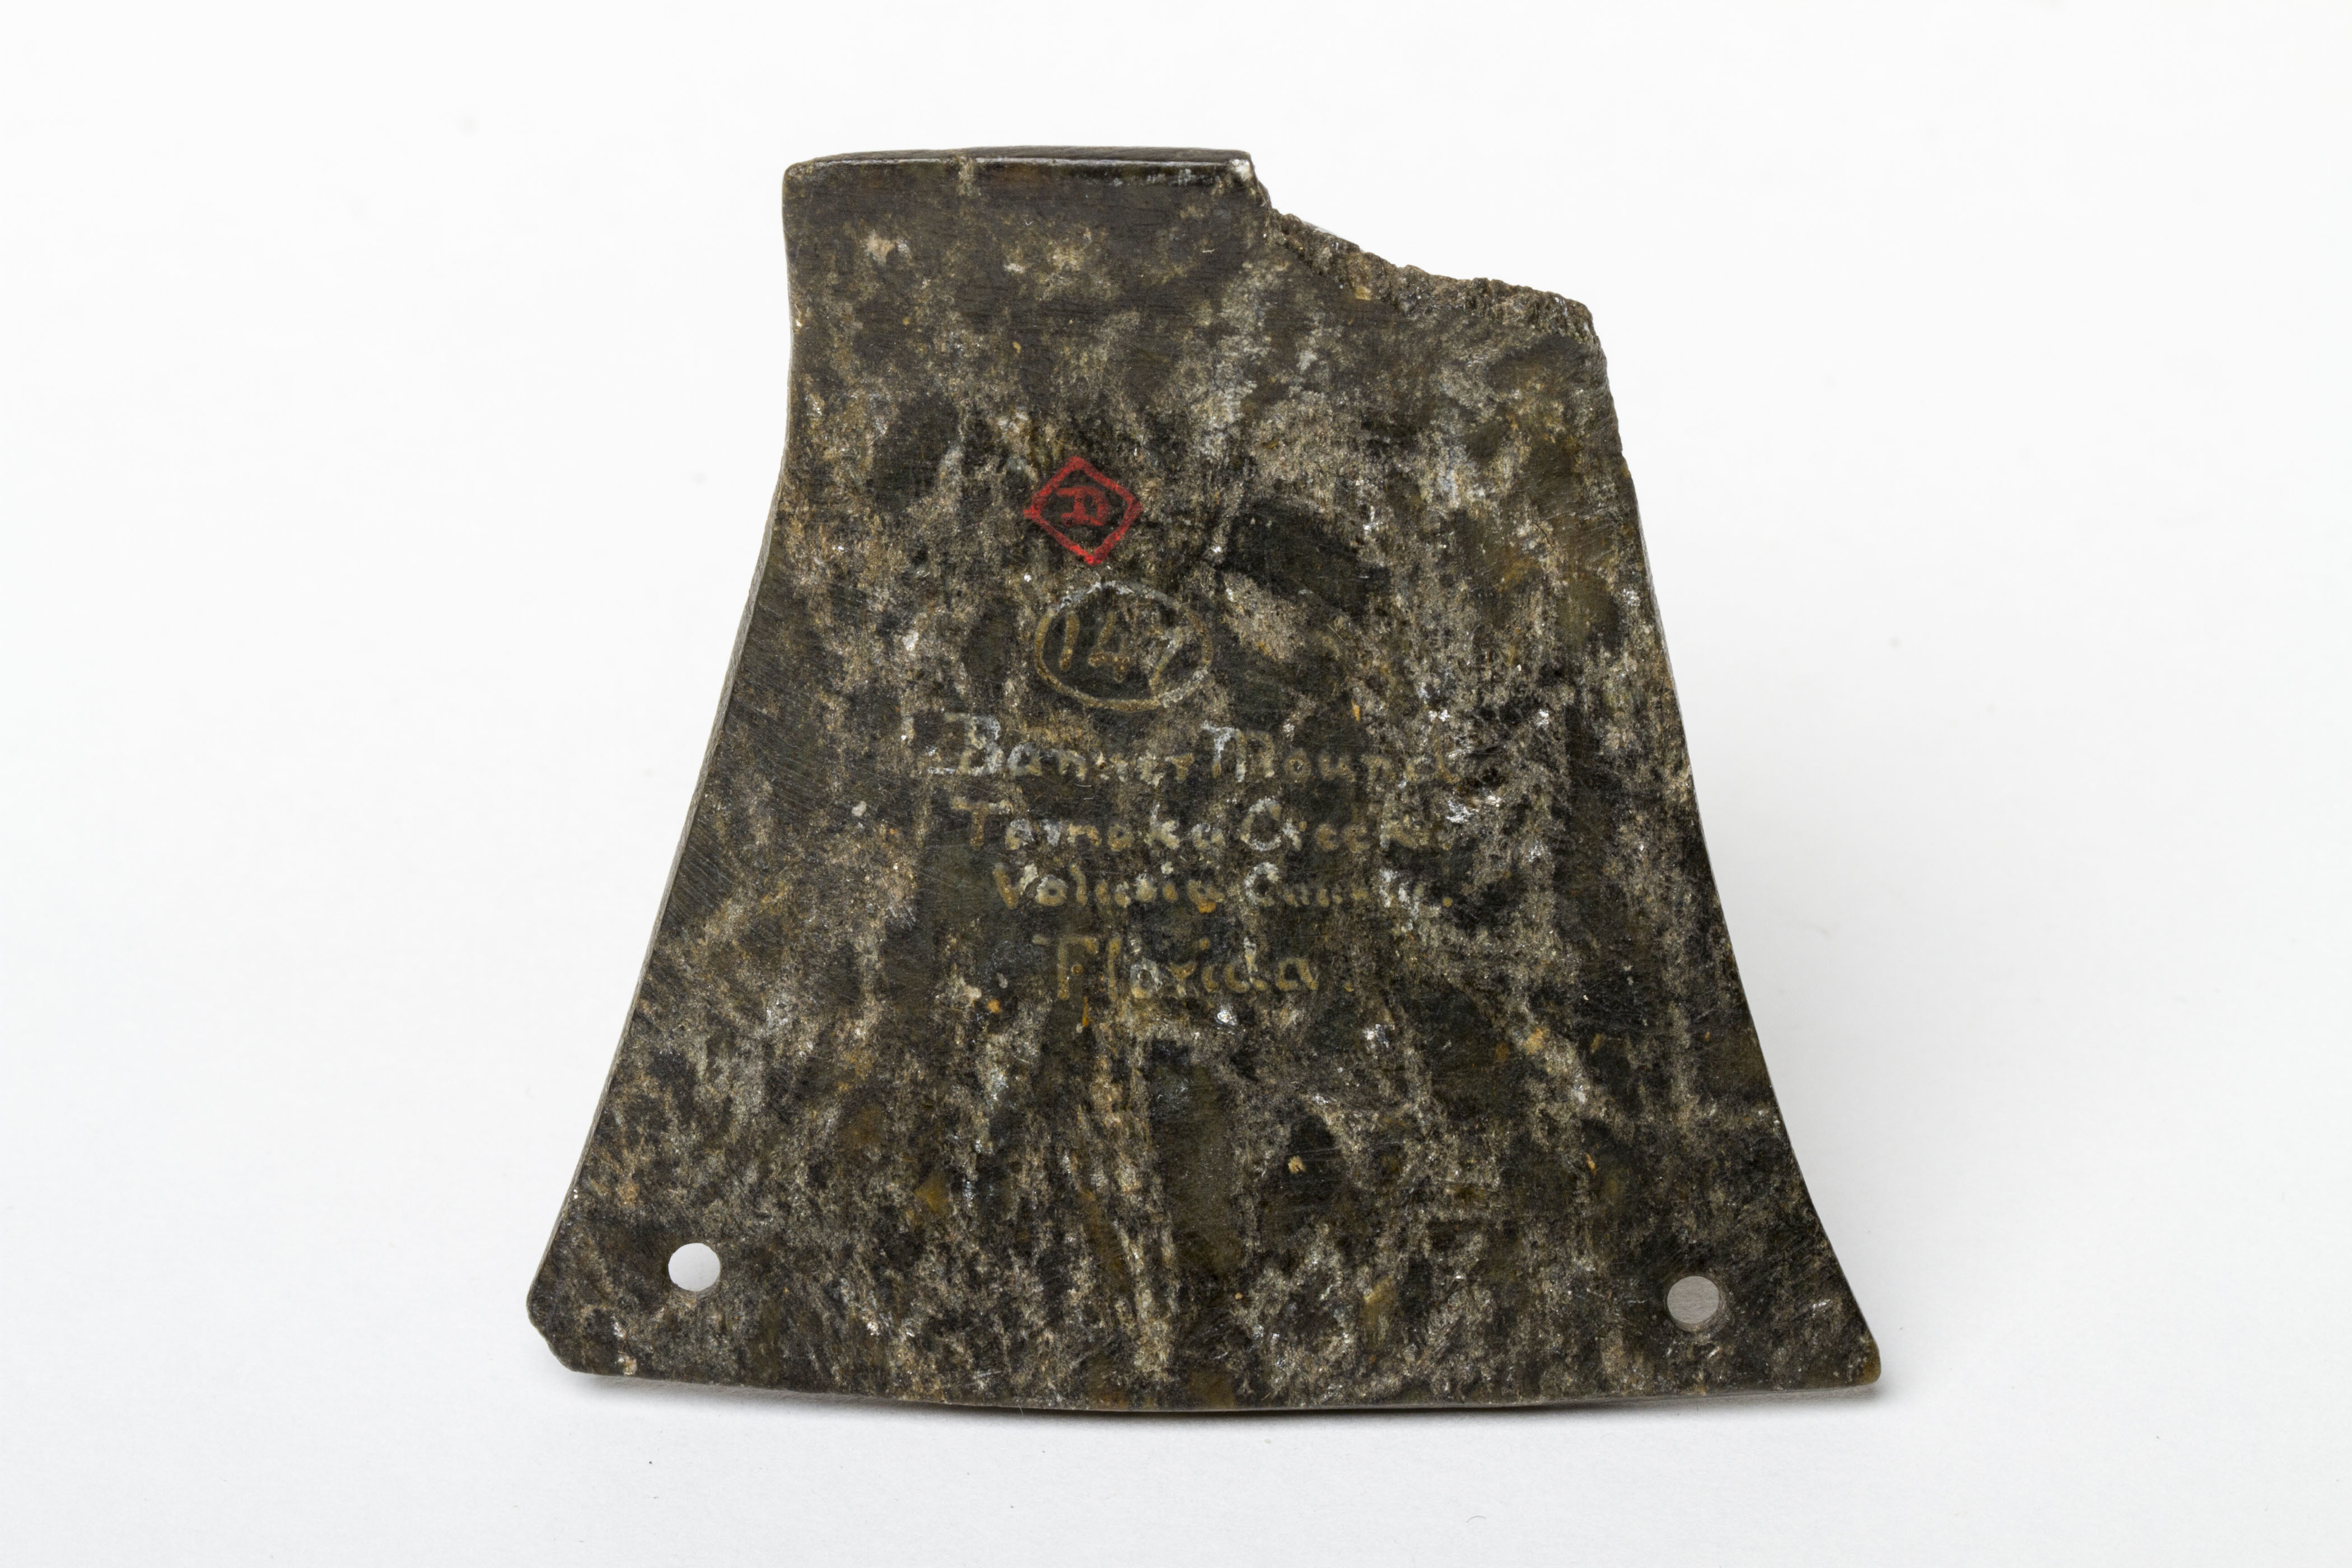 D
147
Banner Mound
Tomoka Creek.
Volusia County.
Florida.